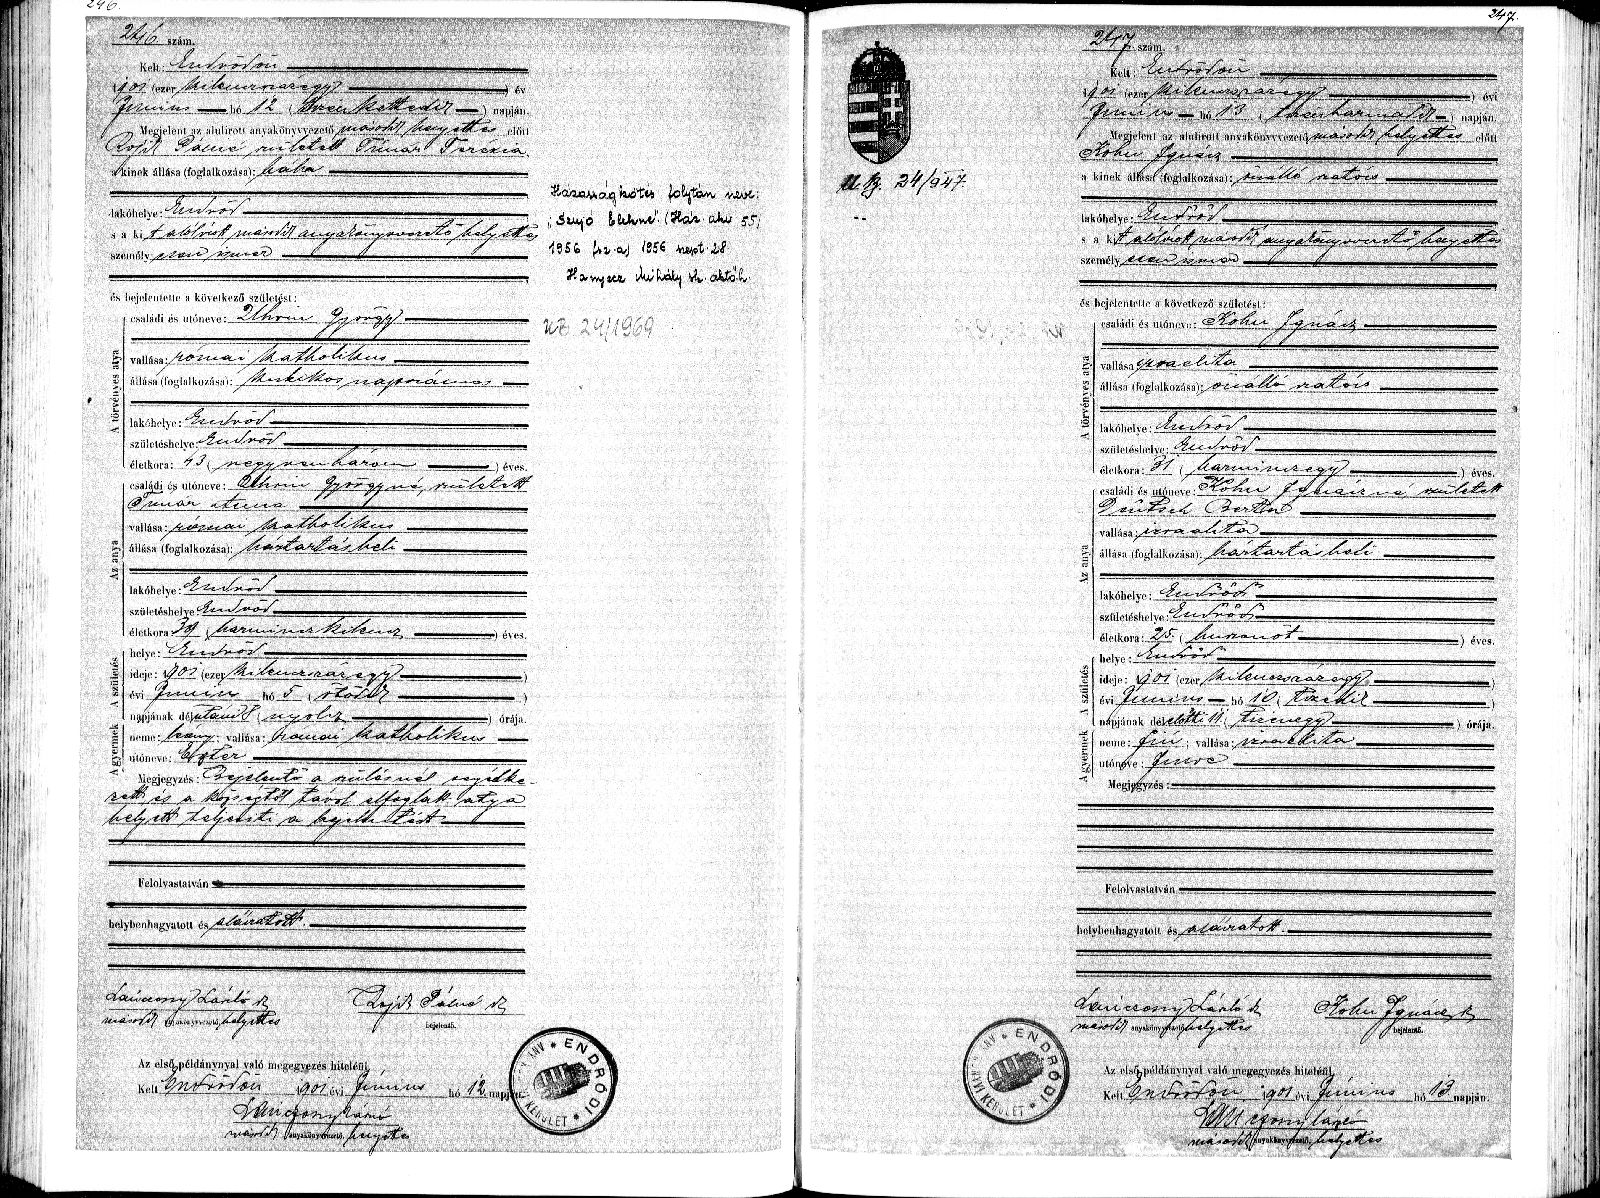 246.
246 szám.
Kelt: Endrődön
1901 (ezer kilenczszázegy) év
Június hó 12 (tizenkettedik) napján.
Megjelent az alulirott anyakönyvvezető második helyettes előtt
Pálné született Tímár Terézia,
a kinek állása (foglalkozása): bába
lakóhelye: Endrőd
s a kit alólirott második anyakönyvvezető helyettes
személyesen ismer
és bejelentette a következő születést:
A törvényes atya
családi és utóneve: Uhrin György
vallása: római katholikus
állása (foglalkozása): kubikos napszámos
lakóhelye: Endrőd
születéshelye: Endrőd
életkora: 43 (negyvenhárom) éves.
Az anya
családi és utóneve: Uhrin Györgyné, született
Tímár Anna
vallása: római katholikus
állása (foglalkozása): háztartásbeli
lakóhelye: Endrőd
születéshelye Endrőd
életkora: 39 (harminczkilencz) éves.
A gyermek A születés
helye: Endrőd
ideje: 1901 (ezer kilenczszázegy)
évi Június hó 5 (ötödik)
napjának délutáni 8 (nyolcz) órája.
neme: leány; vallása: római katholikus
utóneve: Eszter
Megjegyzés: Bejelentő a szülésnél segédke-
zett és a községtől távol elfoglalt atya
helyett teljesíti a bejelentést
Felolvastatván
helybenhagyatott és aláiratott.
Lánczony László sk
második anyakönyvvezető helyettes
Pálné sk
bejelentő.
Az első példánynyal való megegyezés hiteléül.
Kelt Endrődön 1901 évi Június hó 12 napján
Lánczony László
második anyakönyvvezető helyettes
ENDRŐDI
KERÜLET
Házasságkötés folytán neve:
(Ház. akv 55/
1956 fsz. a) 1956 szept. 28
Hanyecz Mihály sk. aktóh.
UZ 24/1969
247.
247 szám.
Kelt: Endrődön
1901 (ezer kilenczszázegy) évi
Június hó 13 (tizenharmadik) napján.
Megjelent az alulirott anyakönyvvezető második helyettes előtt
Kohn Ignácz
a kinek állása (foglalkozása): önálló szatócs
lakóhelye: Endrőd
s a kit alólirott második anyakönyvvezető helyettes
személyesen ismer
és bejelentette a következő születést:
A törvényes atya
családi és utóneve: Kohn Ignácz
vallása izraelita
állása (foglalkozása): önálló szatócs
lakóhelye: Endrőd
születéshelye: Endrőd
életkora: 31 (harminczegy) éves.
Az anya
családi és utóneve: Kohn Ignáczné született
Deutsch Berta
vallása: izraelita
állása (foglalkozása): háztartásbeli
lakóhelye: Endrőd
születéshelye: Endrőd
életkora: 25. (huszonöt) éves.
A gyermek A születés
helye: Endrőd
ideje: 1901 (ezer kilenczszázegy)
évi Június hó 10 (tizedik)
napjának délelőtti 11 (tizenegy) órája.
neme: fiú; vallása: izraelita
utóneve: Imre
Megjegyzés:
Felolvastatván
helybenhagyatott és aláiratott.
Lánczony László sk
második anyakönyvvezető helyettes
Kohn Ignácz sk
bejelentő.
Az első példánynyal való megegyezés hiteléül.
Kelt Endrődön 1901 évi Június hó 13 napján.
Lánczony László
második anyakönyvvezető helyettes
ENDRŐDI
KERÜLET
24/947.